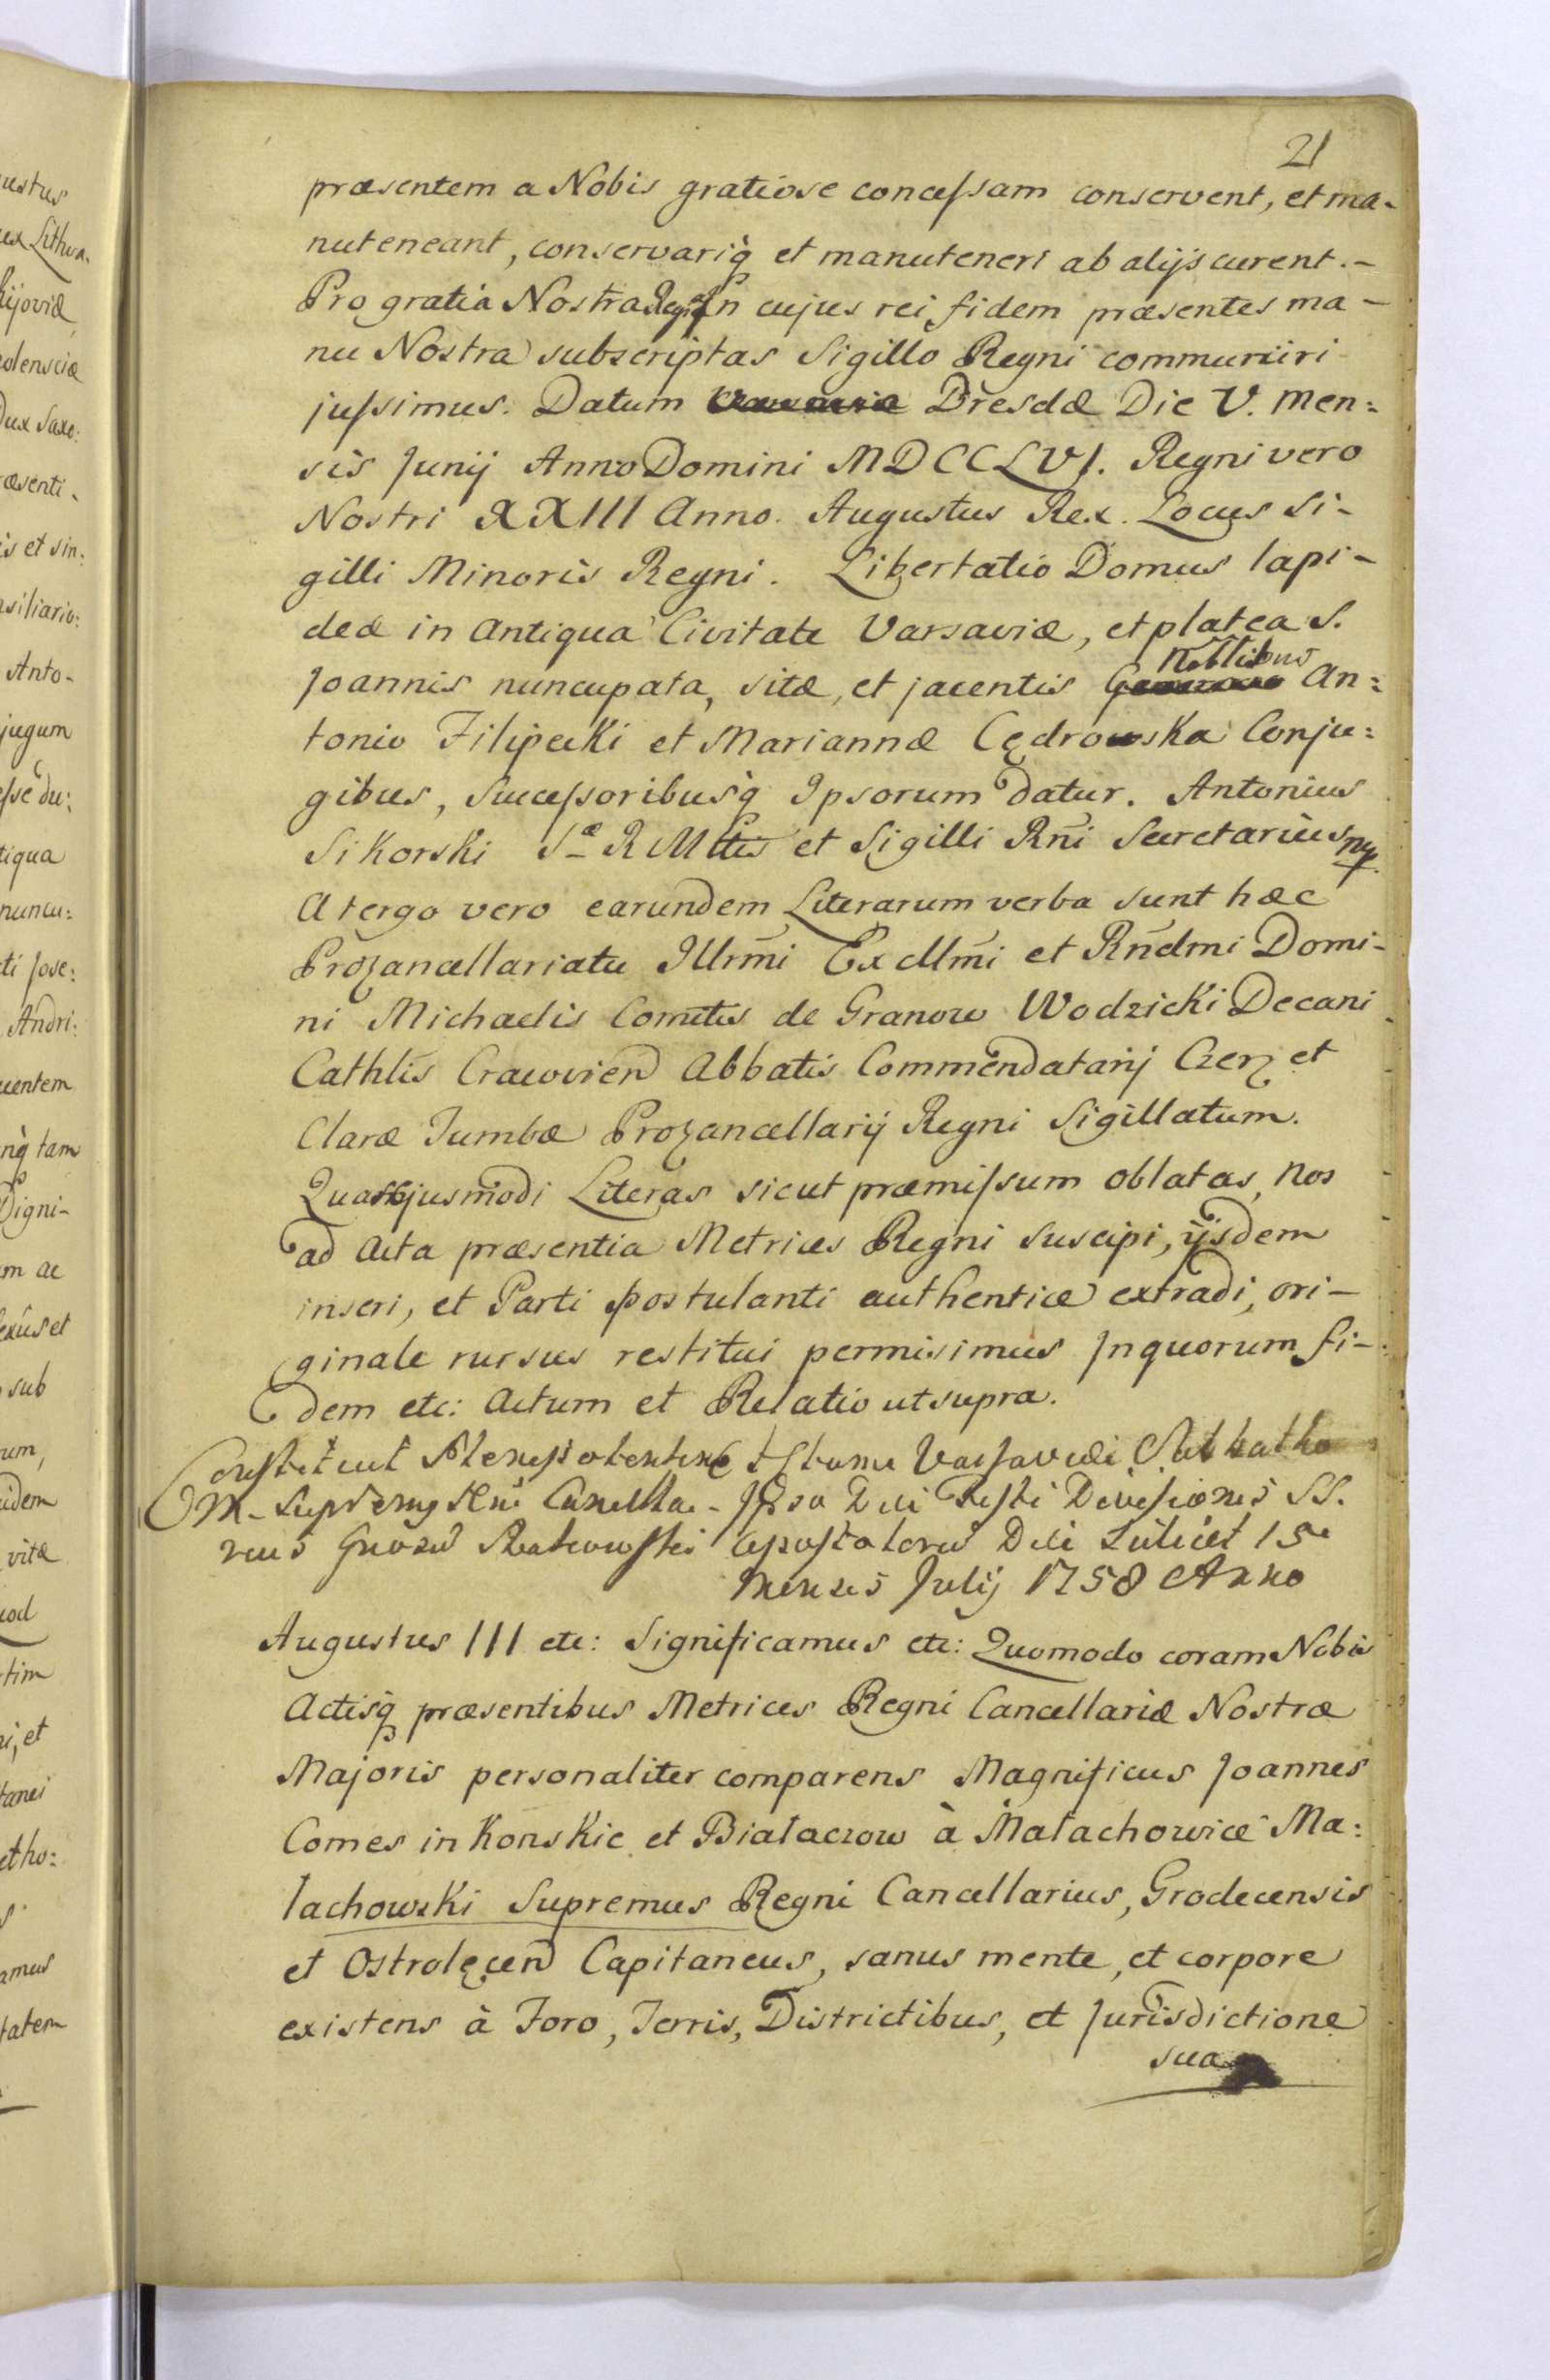 21
præsentem a Nobis gratiose concessam conservent, et ma-
nuteneant, conservariq et manuteneri ab alijs curent.-
Pro gratia Nostra Regia In cujus rei fidem præsentes ma-
nu Nostra subscriptas Sigillo Regni communiri
jussimus. Datum Dresdæ Die V. Men:
sis Junij Anno Domini MDCCLVI. Regni vero
Nostri XXIII Anno. Augustus Rex. Locus Si-
gilli Minoris Regni. Libertatio Domus lapi-
deæ in Antiqua Civitate Varsaviæ, et platea S.
Nobilibus
Joannis nuncupata, sitæ, et jacentis An:
tonio Filipecki et Mariannæ Cędrowska Conju:
gibus, Successoribusq Ipsorum datur. Antonius
Sikorski Sæ R Mttis et Sigilli Rni Secretarius mp.
A tergo vero earundem Literarum verba sunt hæc
Prozancellariatu Illrmi Excllmi et Rndmi Domi-
ni Michaelis Comitis de Granow Wodzicki Decani
Cathlis Cracovien Abbatis Commendatarij Czerz et
Claræ Tumbæ Prozancellarij Regni Sigillatum.
Quas ejusmodi Literas sicut præmissum oblatas, Nos
ad Acta præsentia Metrices Regni suscipi, ijsdem
inseri, et Parti postulanti authentice extradi, ori-
ginale rursus restitui permisimus In quorum fi-
dem etc: Actum et Relatio ut supra.
Constituit Plenipotentem Actum Varsaviæ Sabbatho
M. Supremus Rni Cancella- Ipso Die Festi Divisionis SS.
rius Apostolorum Die Scilicet 15
Mensis Julij 1758 Anno
Augustus III etc: Significamus etc: Quomodo coram Nobis
Actisq præsentibus Metrices Regni Cancellariæ Nostræ
Majoris personaliter comparens Magnificus Joannes
Comes in Konskie et Białaczow à Małachowice Ma:
łachowski Supremus Regni Cancellarius, Grodecensis
et Ostrolęcen Capitaneus, sanus mente, et corpore
existens à Foro, Terris, Districtibus, et Jurisdictione
sua